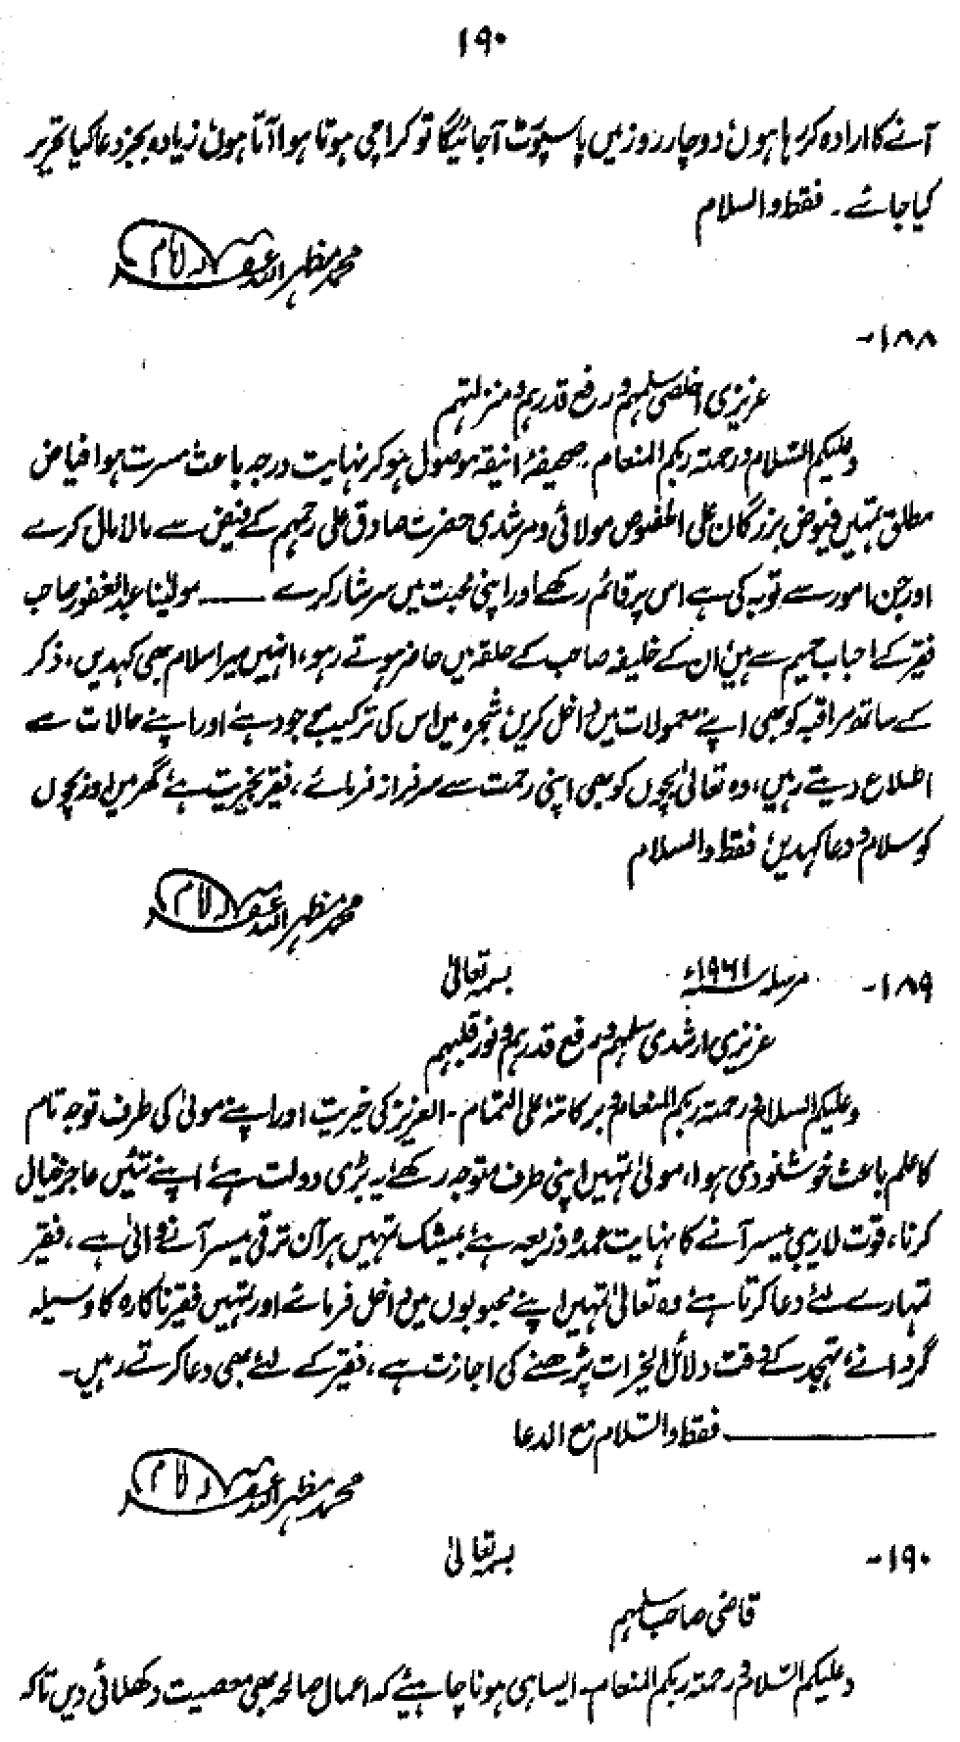 ۱۹۰
آنے کا ارادہ کر رہا ہوں دو چار روز میں پاسپوٹ آجائیگا تو کراچی ہوتا ہوا آتا ہوں زیادہ بجز دعا کیا تحریر
کیا جائے۔ فقط والسلام
محمد مظہر اللہ
۱۸۸-
عزیزی اخلصی سلہم و رفع قدرہم و منزلتہم
وعلیکم السلام و رحمتہ ربکم المنعام۔ صحیفۂ انیقہ موصول ہو کر نہایت درجہ باعث مسرت ہوا فیاض
مطلق تمہیں فیوض بزرگان علی الخصوص مولائی و مرشدی حضرت صادق علی رحمہم کے فیض سے مالا مال کرے
اور جن امور سے توبہ کی ہے اس پر قائم رکھے اور اپنی محبت میں سرشار کرے ـــــ مولینا عبدالغفور صاحب
فقیر کے احباب حمیم سے ہیں ان کے خلیفہ صاحب کے حلقہ میں حاضر ہوتے رہو، انہیں میرا سلام بھی کہدیں، ذکر
کے ساتھ مراقبہ کو بھی اپنے معمولات میں داخل کریں شجرہ میں اس کی ترکیب موجود ہے اور اپنے حالات سے
اطلاع دیتے رہیں، وہ تعالیٰ بچوں کو بھی اپنی رحمت سے سرفراز فرمائے، فقیر بخیریت ہے گھر میں اور بچوں
کو سلام و دعا کہدیں فقط والسلام
محمد مظہر اللہ
۱۸۹- مرسلہ ۱۹۶۱ء بسمہ تعالیٰ
عزیزی ارشدی سلہم و رفع قدرہم و نور قلبہم
وعلیکم السلام و رحمتہ ربکم المنعام و برکاتہ علی التمام۔ العزیز کی خیریت اور اپنے مولیٰ کی طرف توجہ تام
کا علم باعث خوشنودی ہوا، مولیٰ تمہیں اپنی طرف متوجہ رکھے یہ بڑی دولت ہے اپنے تئیں عاجز خیال
کرنا، قوت لاریبی میسر آنے کا نہایت عمدہ ذریعہ ہے بیشک تمہیں ہر آن ترقی میسر آنے والی ہے، فقیر
تمہارے لئے دعا کرتا ہے وہ تعالیٰ تمہیں اپنے محبوبوں میں داخل فرمائے اور تمہیں فقیر ناکارہ کا وسیلہ
گردانے، تہجد کے وقت دلائل الخیرات پڑھنے کی اجازت ہے، فقیر کے لئے بھی دعا کرتے رہیں۔
فقط والسلام مع الدعا
محمد مظہر اللہ
۱۹۰- بسمہ تعالیٰ
قاضی صاحب سلہم
وعلیکم السلام و رحمتہ ربکم المنعام۔ ایسا ہی ہونا چاہیئے کہ اعمال صالحہ بھی معصیت دکھلائی دیں تاکہ